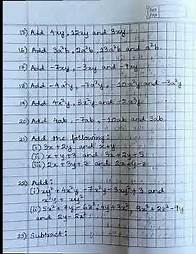 15) Add 4xy, 12xy and 3xy.
16) Add 3a²b, 2a²b, 13a²b and a²b.
17) Add -7xy, -3xy and -9xy.
18) Add -4x²y, -7x²y, -10x²y and -3x²y
19) Add 4x²y, 8x²y and -2x²y
20) Add 4ab, -7ab, -10ab and 3ab
21) Add the following:
(i) 3x + 2y and x + y
(ii) x + y + 3 and 3x + 2y + 5
(iii) 2x + 3y + z and 2x - y - z
22) Add:
(i) xy² + 4x²y - 7x²y - 3xy² + 3 and
x²y + xy²
(ii) 5x² + 7y - 6x² + 4y + 3x², 9x² + 2x² - 9y
and 2y - 2x²
23) Subtract: